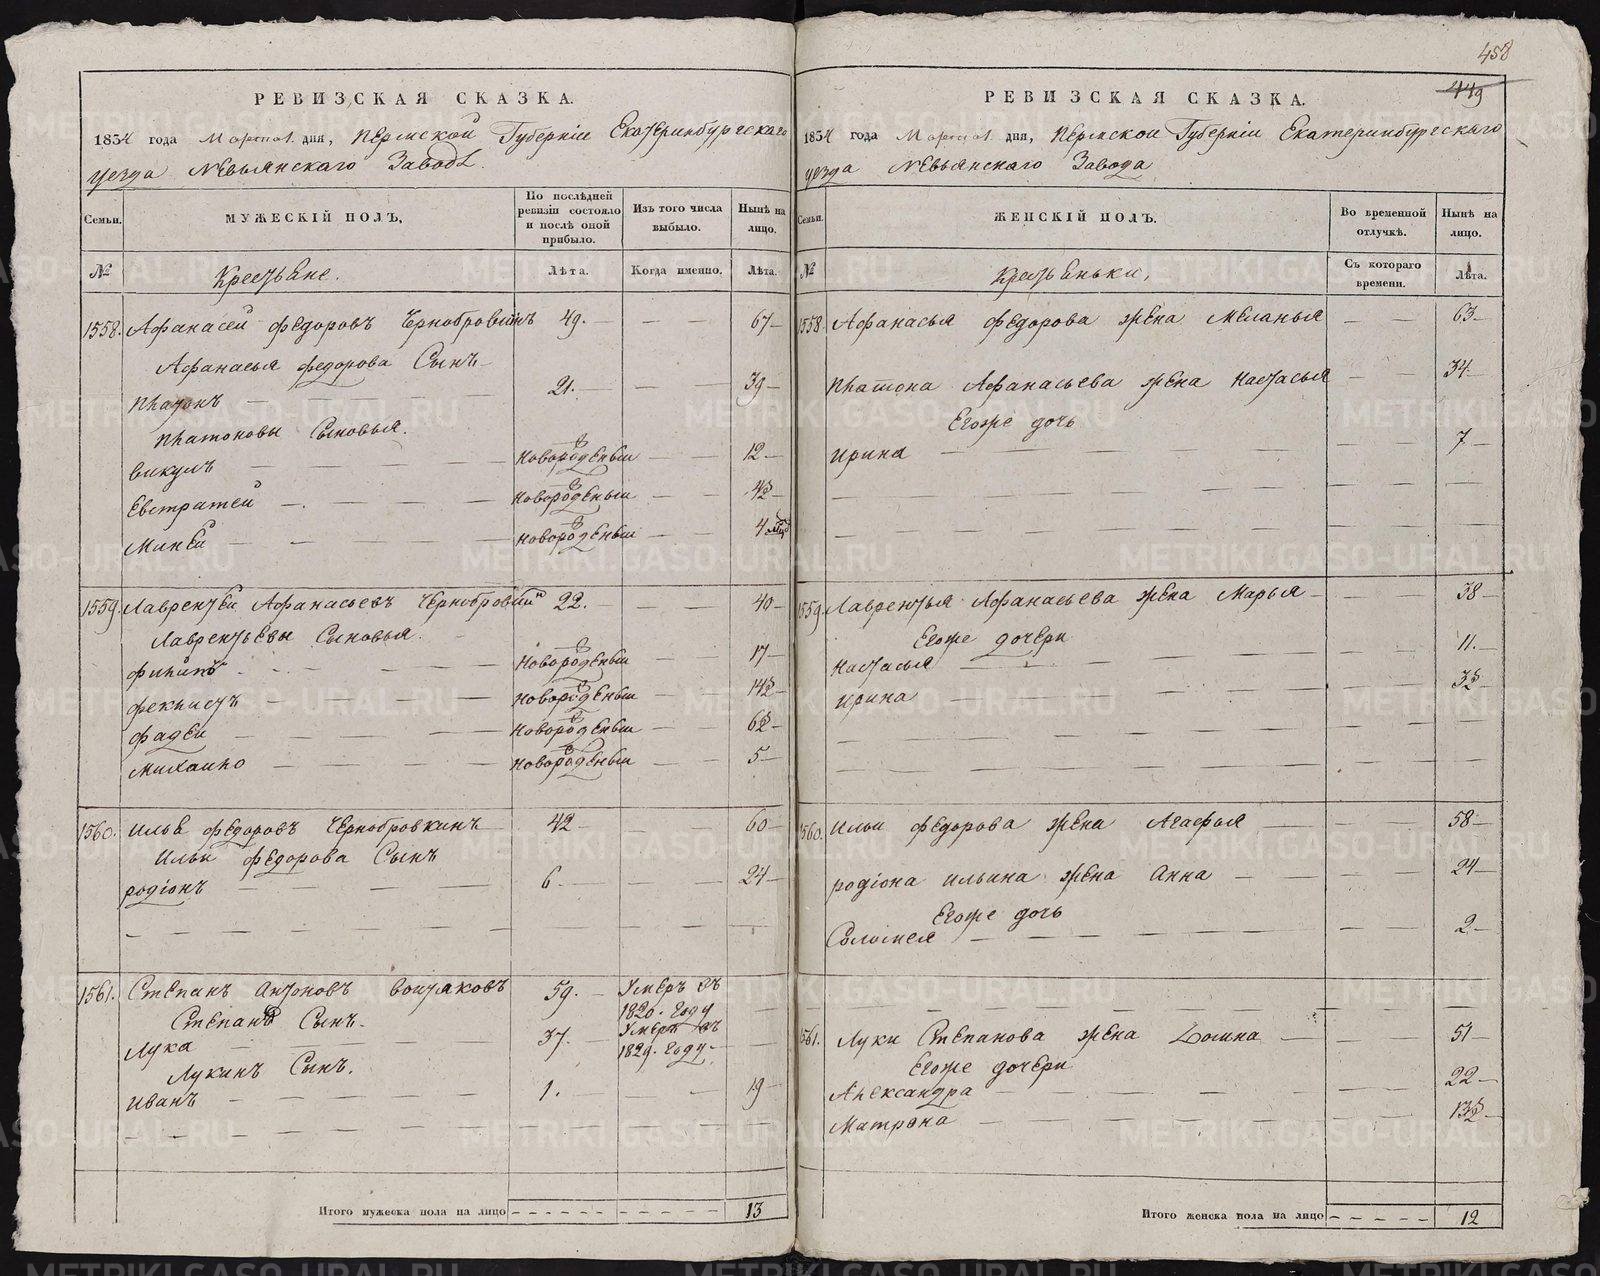 458
449
РЕВИЗСКАЯ СКАЗКА.
1834 года Марта 1 дня, Пермской Губерніи Екатеринбургскаго
уезда Невьянскаго Завода.
Семьи. МУЖЕСКІЙ ПОЛЪ. По послѣдней ревизіи состояло и послѣ оной прибыло. Изъ того числа выбыло. Нынѣ на лицо.
№ Крестьяне. Лѣта. Когда именно. Лѣта.
1558. Афанасей Федоровъ Чернобровкинъ 49. — — 67 —
Афанасья Федорова Сынъ
Платонъ — — — 21. — — — 39 —
Платоновы Сыновья.
Викулъ — — — новорожденный — — 12 —
Евстратей — — — новорожденный — — 4½ —
Миней — — — новорожденный — — 4 мц
1559. Лаврентей Афанасьевъ Чернобровкинъ 22. — — — 40 —
Лаврентьевы Сыновья.
Филипъ — — — новорожденный — — 17 —
Феклистъ — — — новорожденный — — 14½ —
Фадей — — — новорожденный — — 6½ —
Михайло — — — новорожденный — — 5 —
1560. Илья Федоровъ Чернобровкинъ — 42 — — — 60 —
Ильи Федорова Сынъ
Родіонъ — — — 6 — — — 24 —
1561. Степанъ Антоновъ Войтяковъ 59. — Умеръ въ
1820. Году
Степана Сынъ.
Лука — — — 37. Умеръ въ
1829. Году —
Лукинъ Сынъ.
Иванъ — — — 1. — — 19 —
Итого мужеска пола на лицо — — — 13
РЕВИЗСКАЯ СКАЗКА.
1834 года Марта 1 дня, Пермской Губерніи Екатеринбургскаго
уезда Невьянскаго Завода
Семьи. ЖЕНСКІЙ ПОЛЪ. Во временной отлучкѣ. Нынѣ на лицо.
№ Крестьянки, Съ котораго времени. Лѣта.
1558. Афанасья Федорова жена Меланья — — 63 —
Платона Афанасьева жена Настасья — — 34 —
Егоже дочь
Ирина — — — 7 —
1559. Лаврентья Афанасьева жена Марья — — 38 —
Егоже дочери
Настасья — — — 11. —
Ирина — — — 3½ —
1560. Ильи Федорова жена Агафья — — 58 —
Родіона Ильина жена Анна — — 24 —
Егоже дочь
Соломея — — — 2 —
1561. Луки Степанова жена Домна — — 51 —
Егоже дочери
Александра — — — 22 —
Матрона — — — 13½ —
Итого женска пола на лицо — — — 12
METRIKI.GASO-URAL.RU